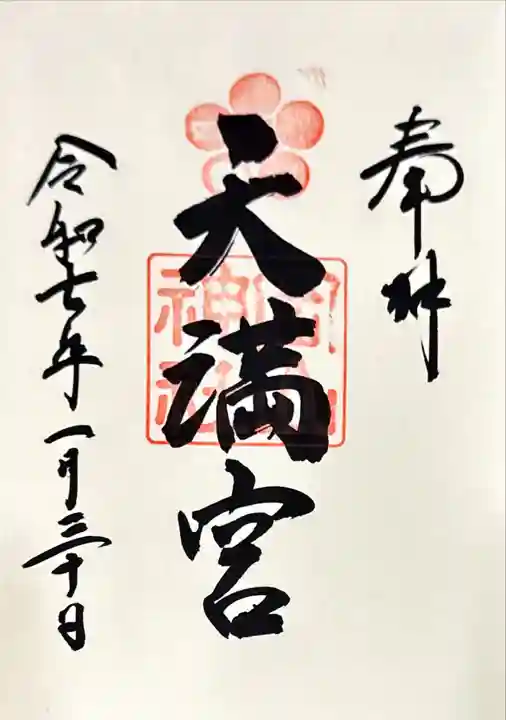 奉拝
天満宮
神社
令和七年一月三十日